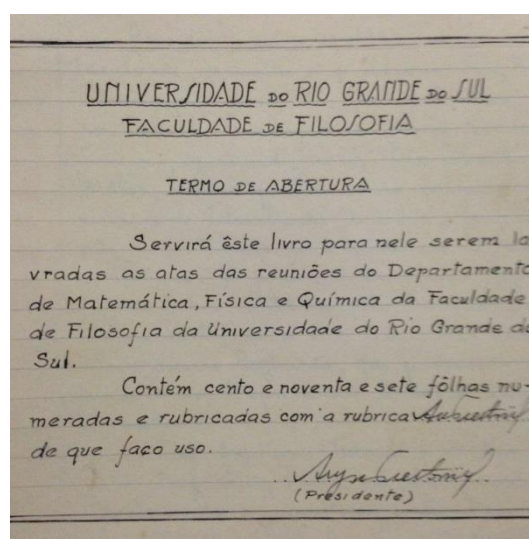 UNIVERSIDADE DO RIO GRANDE DO SUL
FACULDADE DE FILOSOFIA
TERMO DE ABERTURA
Servirá êste livro para nele serem la
vradas as atas das reuniões do Departamento
de Matemática, Física e Química da Faculdade
de Filosofia da Universidade do Rio Grande do
Sul.
Contém cento e noventa e sete fôlhas nu-
meradas e rubricadas com a rubrica
de que faço uso.
(Presidente)